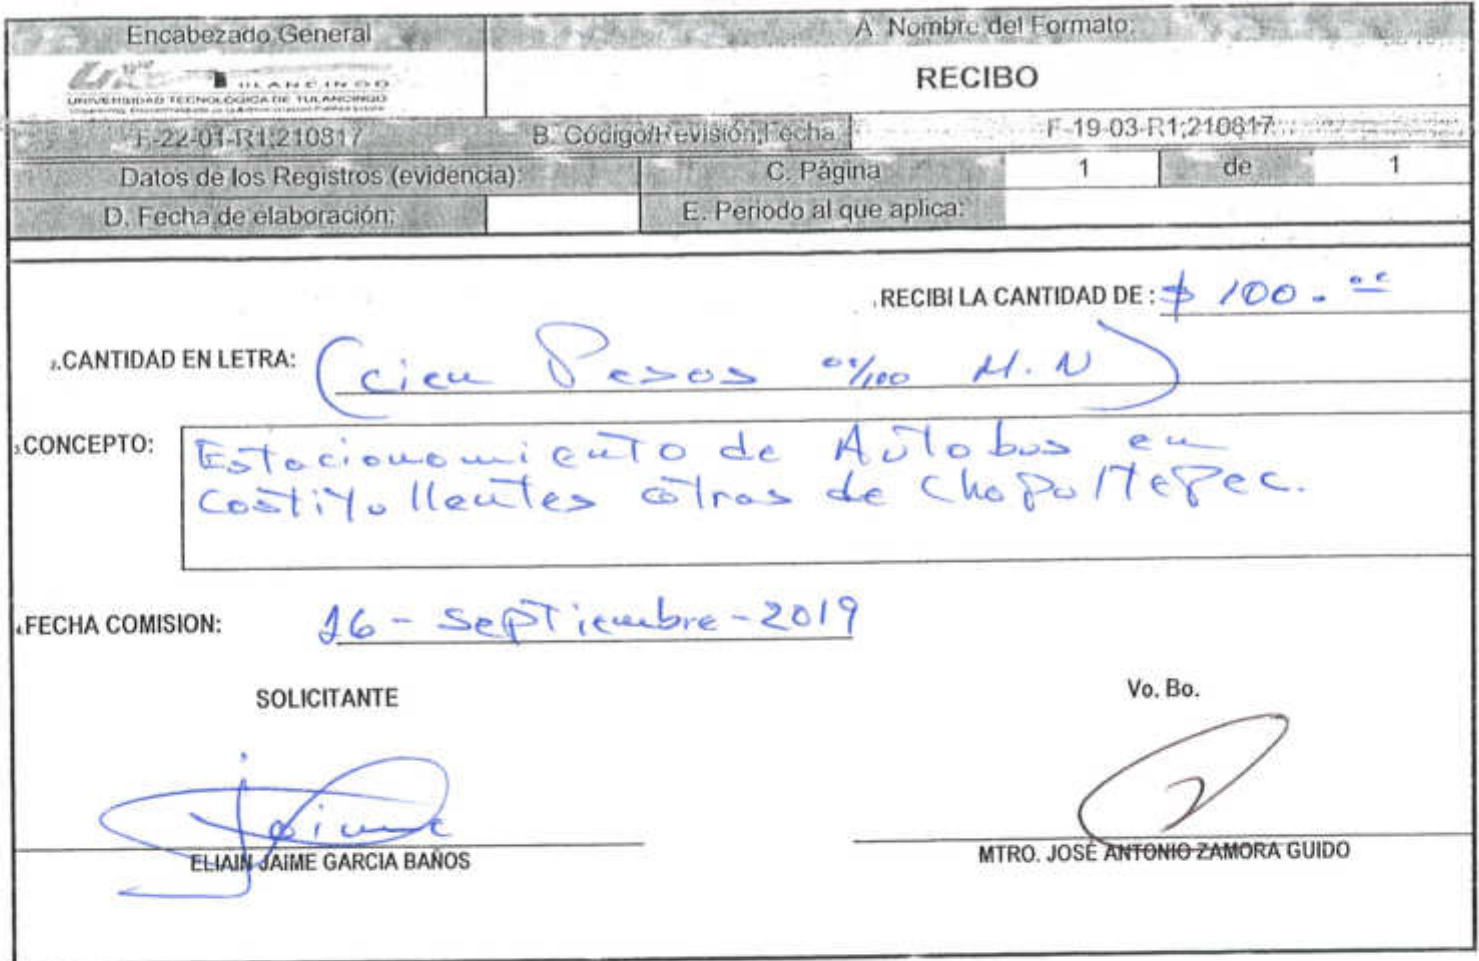 Encabezado General
A. Nombre del Formato:
TULANCINGO
UNIVERSIDAD TECNOLÓGICA DE TULANCINGO
RECIBO
F-22-01-R1;210817
B. Código/Revisión;Fecha
F-19-03-R1;210817
Datos de los Registros (evidencia):
C. Página
1 de 1
D. Fecha de elaboración:
E. Periodo al que aplica:
1.RECIBI LA CANTIDAD DE : $ 100.00
2.CANTIDAD EN LETRA: (cien Pesos 00/100 M.N)
3.CONCEPTO: Estacionamiento de Autobus en
Costitullentes atras de Chapultepec.
4.FECHA COMISION: 16 - Septiembre - 2019
SOLICITANTE
Vo. Bo.
Jaime
ELIAIN JAIME GARCIA BAÑOS
MTRO. JOSÉ ANTONIO ZAMORA GUIDO